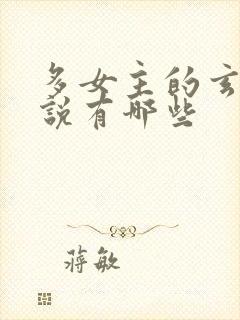 多女主的玄
說有哪些
蔣敏